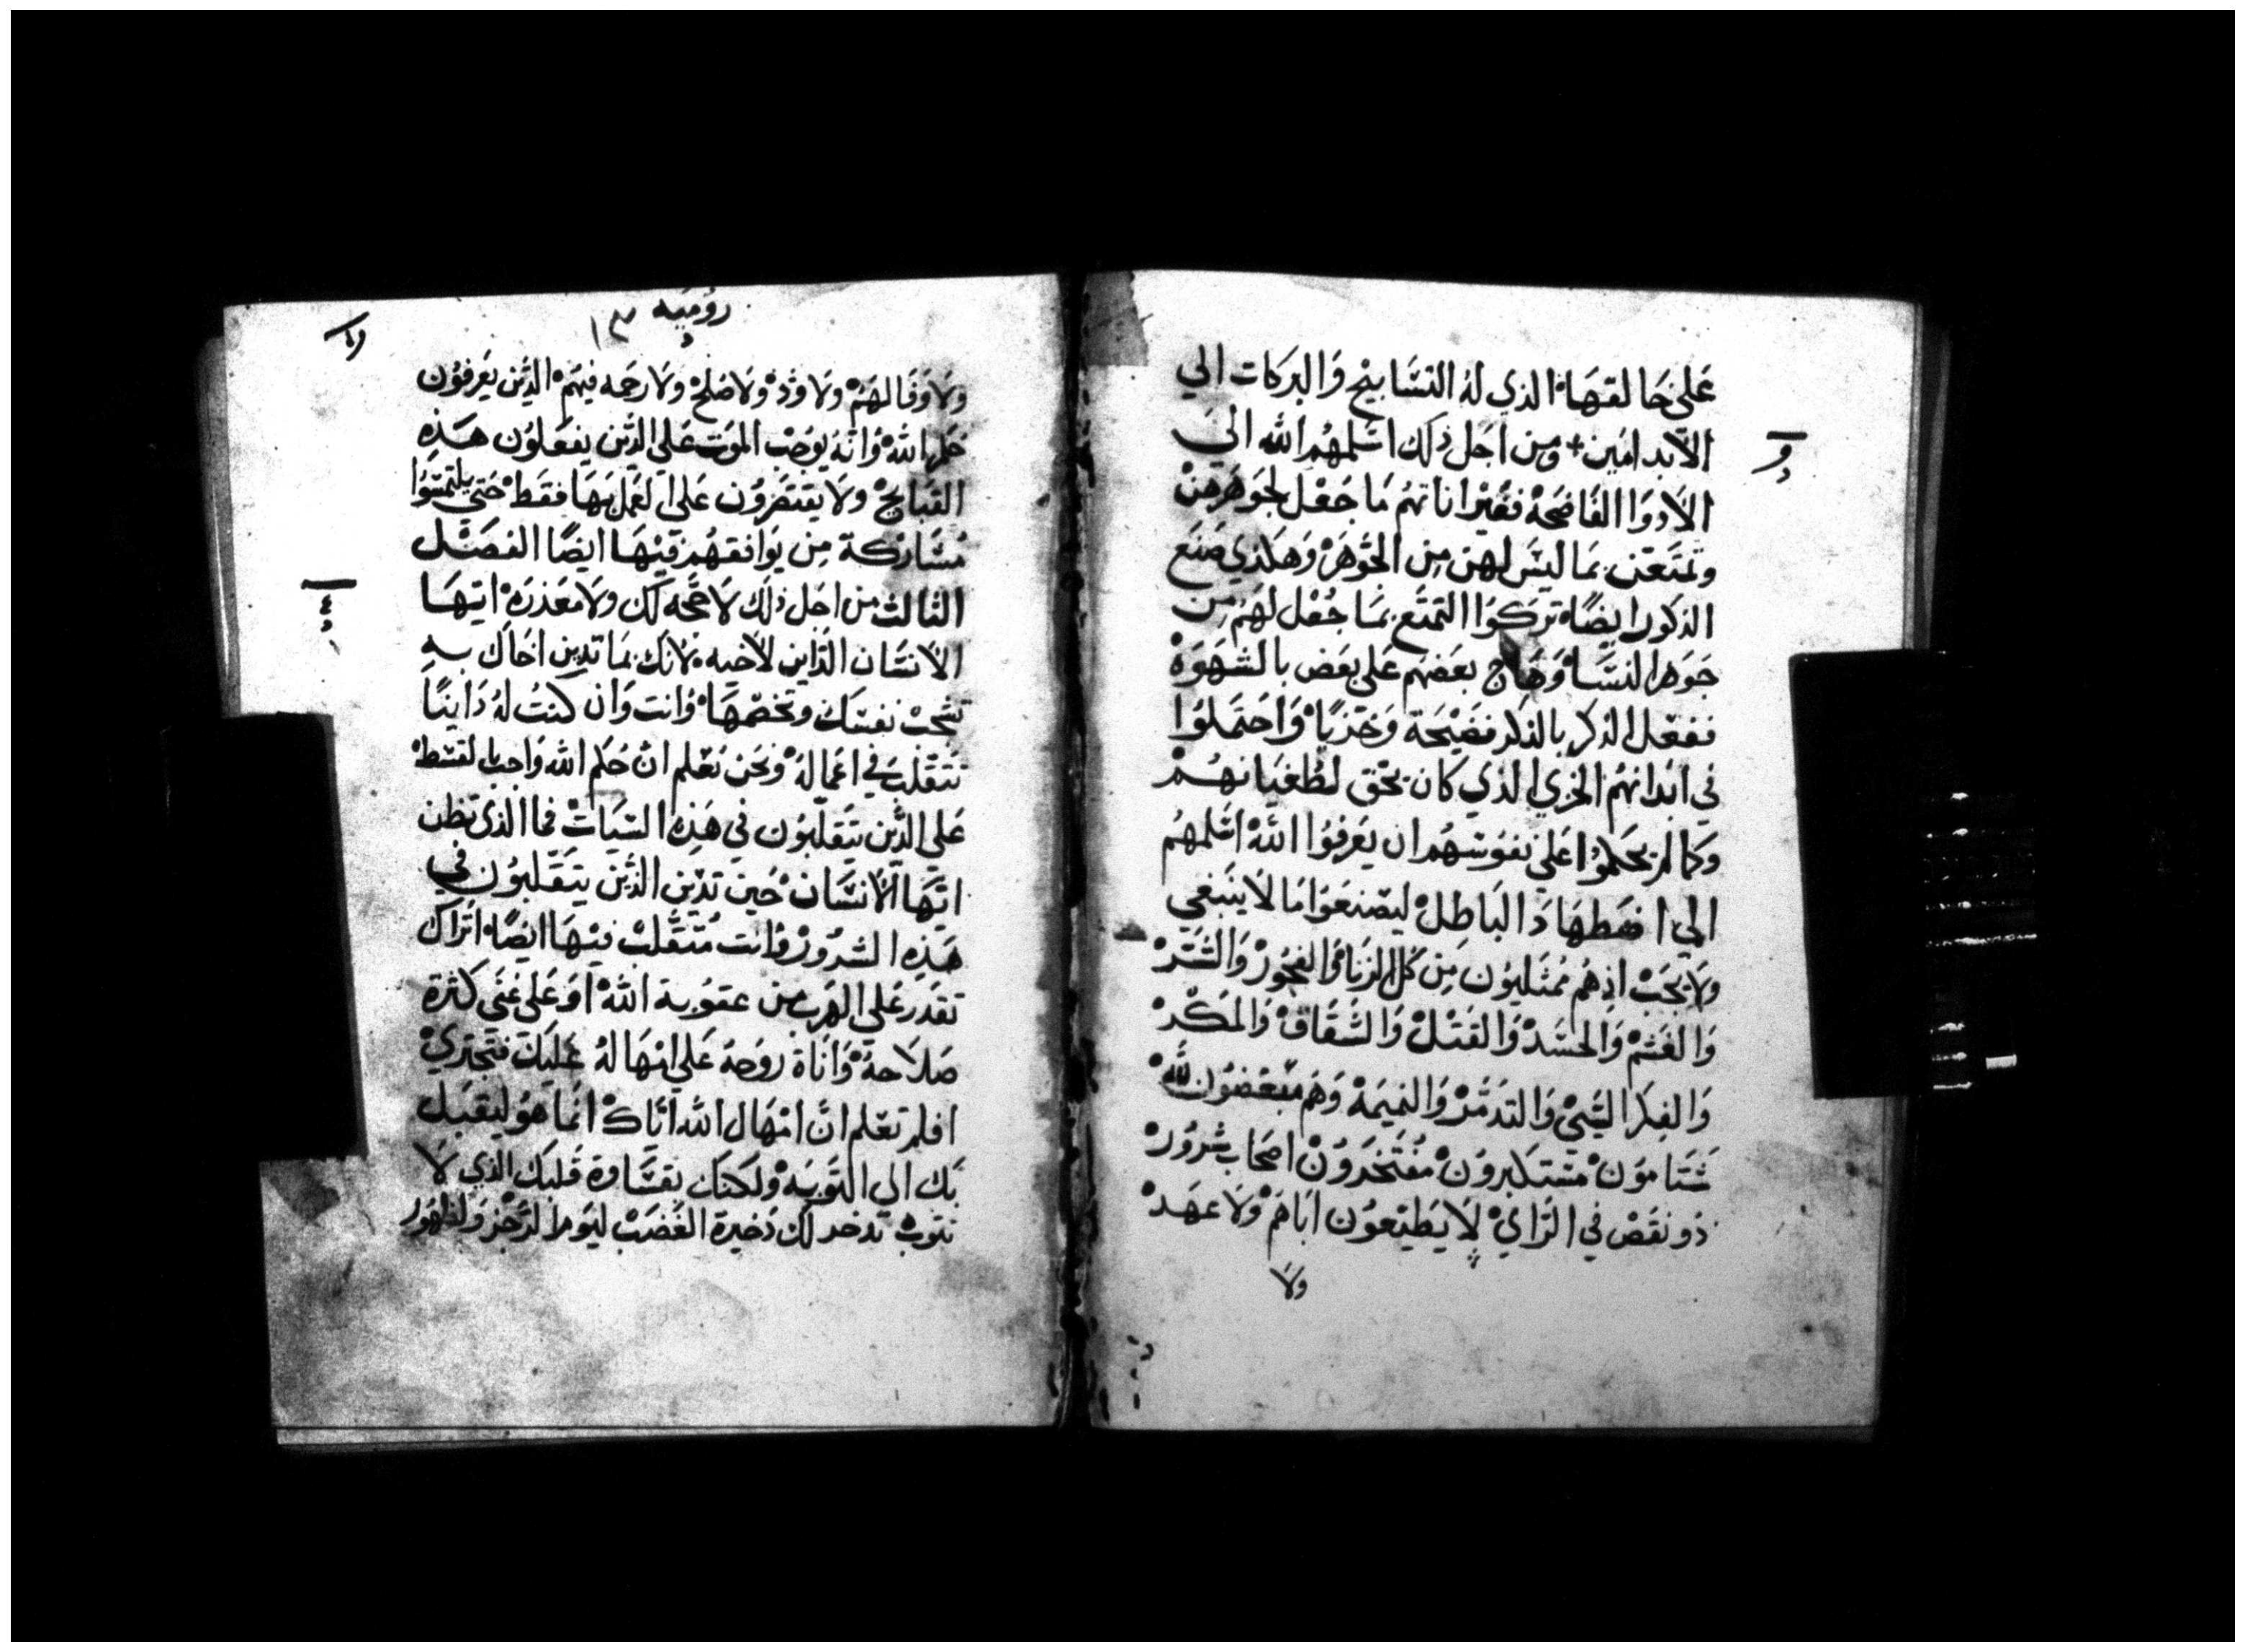 عَلي خَالقهَا الذي لهُ التسَابيح وَالبركات الي
الابد امين + ومن اجَل ذلك اسَلمهُم الله الي
الادوَا الفَاضحَة فغيّر اناتهُم مَا جَعْل لجوَهرهنْ
وتمتعَن بمَا ليسَ لهن مِن الجَوهَرْ وَهكذي صَنَع
الذكور ايضًا تركوَا التمتع بمَا جُعْل لهَم مِن
جَوهر النسَا وَهَاج بعَضهَم عَلي بعَض بالشهَوَة
ففعَل الذكر بالذكر فضَيحَة وَخزيًا وَاحتَملوُا
في ابَدانهُم الخزي الذي كان يحَق لطُغيَانهُمْ
وَكما لم يحَكموُا عَلي نفوُسهُم ان يَعرفوُا اللهْ اسَلمهُم
الي افهَامهَا دَ البَاطِلْ ليصْنعَوُا مَا لا ينبَغي
ولا يجَبْ اذ هُم ممُتَليوُن مِن كل الزنا وَالفجُورْ وَالشَرْ
وَالغَشمْ وَالحَسَدْ وَالقَتلْ وَالشقَاقْ وَالمَكْرْ
وَالفِكر السَّيْ وَالتذمّرْ وَالنميَمة وَهَم مبَغضوُن للهْ
شَتاموَنْ مسْتكبروَنْ مفُتَخروَنْ اصحَاب شرُورْ
ذو نقَصْ في الرَايْ لا يَطيعوُن ابَاهَمْ ولا عهَدْ
ولا
روُميَه
١٣
ولاوَفَا لهَمْ ولا وَدْ ولا صُلحْ ولا رحمَه فيهَمْ الذَّين يَعرفوُن
حُكم اللهْ وُانهُ يوُجَبْ الموَت عَلي الذَّين يفعَلوُن هَذِه
القبَايحْ ولا يقتَصَروُن عَلي العَمل بهَا فقَطْ حَتي يلتمسَوُا
مُشَاركة مِن يوَافقهُم فيْهَا ايضًا الفصَل
الثالث من اجَل ذلَك لا حجَه لك ولا مَعْذرَهْ ايهَا
الانسَان الدَّاين لاخيه لانك بمَا تدِين اخَاك بهِ
تشْجَبْ نفسَك وتخَصْمهَا وُانت وَان كنتُ لهُ دَاينًا
تَتَقلبَ في اعمَالهُ ونحَن نعَلم انْ حُكم الله وَاجبا بالقسَط
عَلي الذَّين يَتقلّبوُن في هَذِه السَيَاتْ فما الذي تظن
ايهَا الانسَانْ حُينَ تدَين الذَّينَ يتقَلبوُن في
هَذِه الشروُرْ وُانت مُتقَلبْ فيْهَا ايضًا اترَاك
تقدَر عَلي الهَرب من عقوُبة اللهْ اوَ عَلي غنَي كثرة
صَلاحهُ وَاناة روُحهُ عَلي امْهَالهُ عَليَك فتجَتريْ
افلم تعَلم انْ امْهَال الله اياكْ انما هوُ ليقبَل
بَك الي التوَبَه ولكنَك بقسَاوة قَلبَك الذي لا
تتوب تدخر لك ذَخيرة الغضَبْ ليوَم الرَجْز ولظهوُر